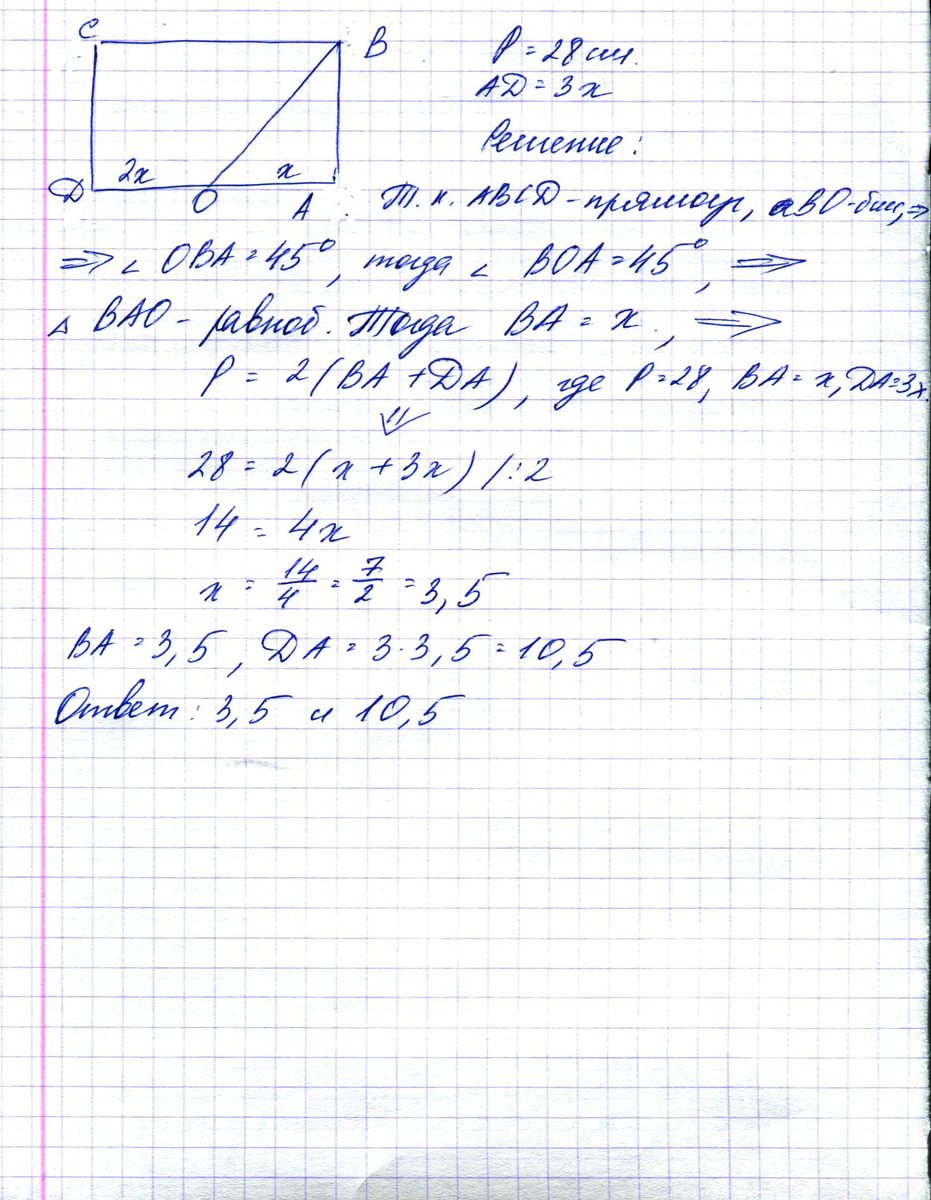 C
B
P = 28 см.
AD = 3x
Решение:
2x
x
D
O
A
Т. к. ABCD - прямоуг, а BO - бис, ⇒
⇒ ∠ OBA = 45°, тогда ∠ BOA = 45°, ⇒
△ BAO - равноб. Тогда BA = x, ⇒
P = 2(BA + DA), где P = 28, BA = x, DA = 3x.
⇓
28 = 2(x + 3x) /:2
14 = 4x
x = 14/4 = 7/2 = 3,5
BA = 3,5, DA = 3·3,5 = 10,5
Ответ: 3,5 и 10,5